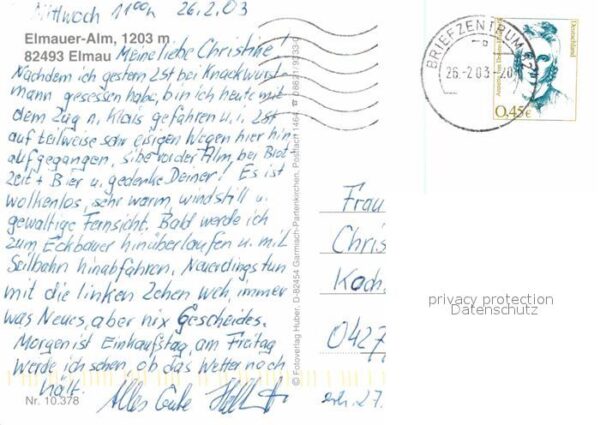 Mittwoch 11ooh 26.2.03
Elmauer-Alm, 1203 m
82493 Elmau
Meine liebe Christine!
Nachdem ich gestern 2St bei Knackwurst-
mann gesessen habe, bin ich heute mit
dem Zug n. Klais gefahren u. i. 2St
auf teilweise sehr eisigen Wegen hier hin-
aufgegangen, sitze vor der Alm, bei Brot-
zeit + Bier u. gedenke Deiner! Es ist
wolkenlos, sehr warm, windstill u.
gewaltige Fernsicht. Bald werde ich
zum Eckbauer hinüberlaufen u. m.d.
Seilbahn hinabfahren. Neuerdings tun
mit die linken Zehen weh, immer
was Neues, aber nix Gescheides.
Morgen ist Einkaufstag, am Freitag
werde ich sehen, ob das Wetter noch
hält.
Alles Gute
Nr. 10.378
© Fotoverlag Huber, D-82454 Garmisch-Partenkirchen, Postfach 1464
BRIEFZENTRUM
26.-2.03.-20
Deutschland
0,45€
Frau
Chris
Koch.
0427
privacy protection
Datenschutz